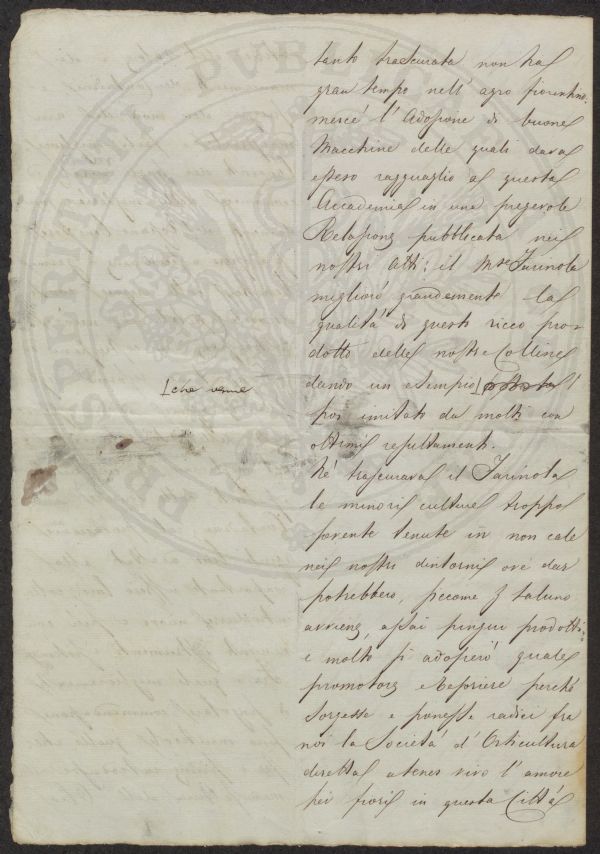 tanto trascurata non ha
gran tempo nell' agro fiorentino
mercé l' Adozione di buone
Macchine delle quali dava
esteso ragguaglio a questa
Accademia in una pregevole
Relazione pubblicata nei
nostri Atti: il Mse Farinola
migliorò grandemente la
qualità di questo ricco pro-
dotto delle nostre Colline
dando un esempio [
[che venne
poi imitato da molti con
ottimi resultamenti.
Né trascurava il Farinola
le minori culture troppo
sovente tenute in non cale
nei nostri dintorni ove dar
potrebbero, siccome
avviene, assai pingui prodotti:
e molto si adoperò quale
promotore e Tesoriere perché
sorgesse e ponesse radici fra
noi la Società d' Orticultura
diretta a tener vivo l' amore
pei fiori in questa Città